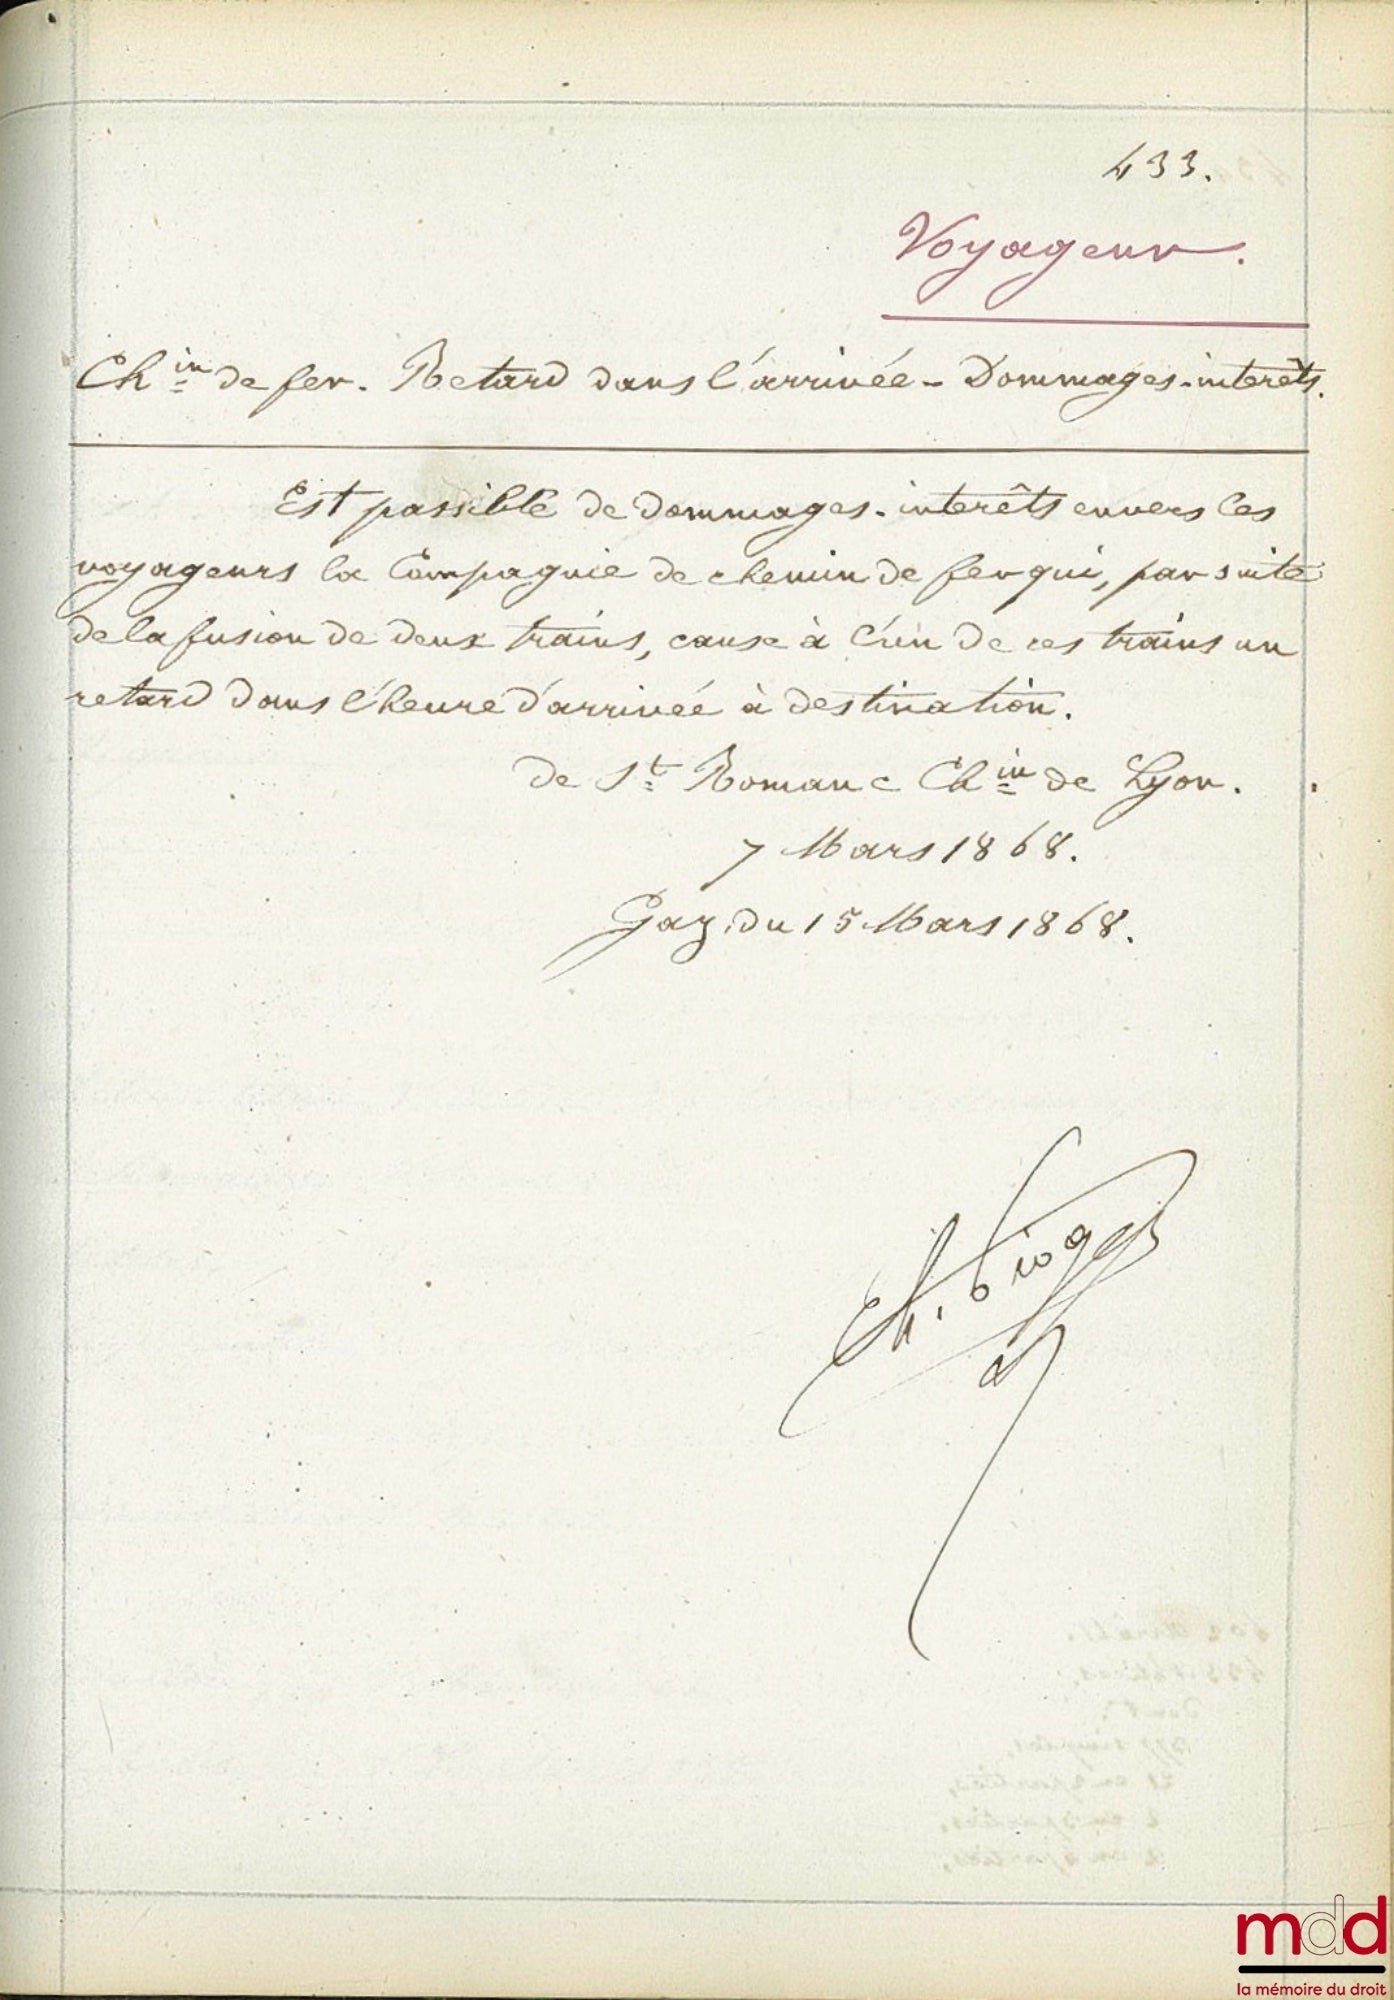 433.
Voyageur.
Ch.in de fer. Retard dans l'arrivée - Dommages-interêts.
Est passible de dommages-interêts envers les
voyageurs la Compagnie de chemin de fer qui, par suite
de la fusion de deux trains, cause à l'un de ces trains un
retard dans l'heure d'arrivée à destination.
de St. Roman c Ch.in de Lyon.
7 Mars 1868.
Gaz. du 15 Mars 1868.
mdd
la mémoire du droit